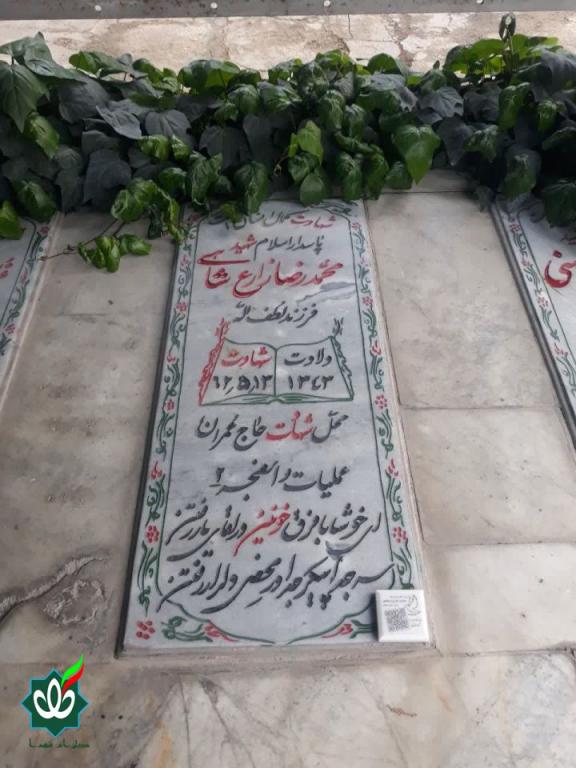 شهادت کمال انسان است
پاسدار اسلام شهید
محمدرضا زارع شاهی
فرزند لطف الله
ولادت شهادت
۱۳۴۳ ۶۲٫۵٫۱۳
محل شهادت حاج عمران
عملیات والفجر ۲
ای خوشا با فرق خونین در لقای یار رفتن
سر جدا پیکر جدا در محضر دلدار رفتن